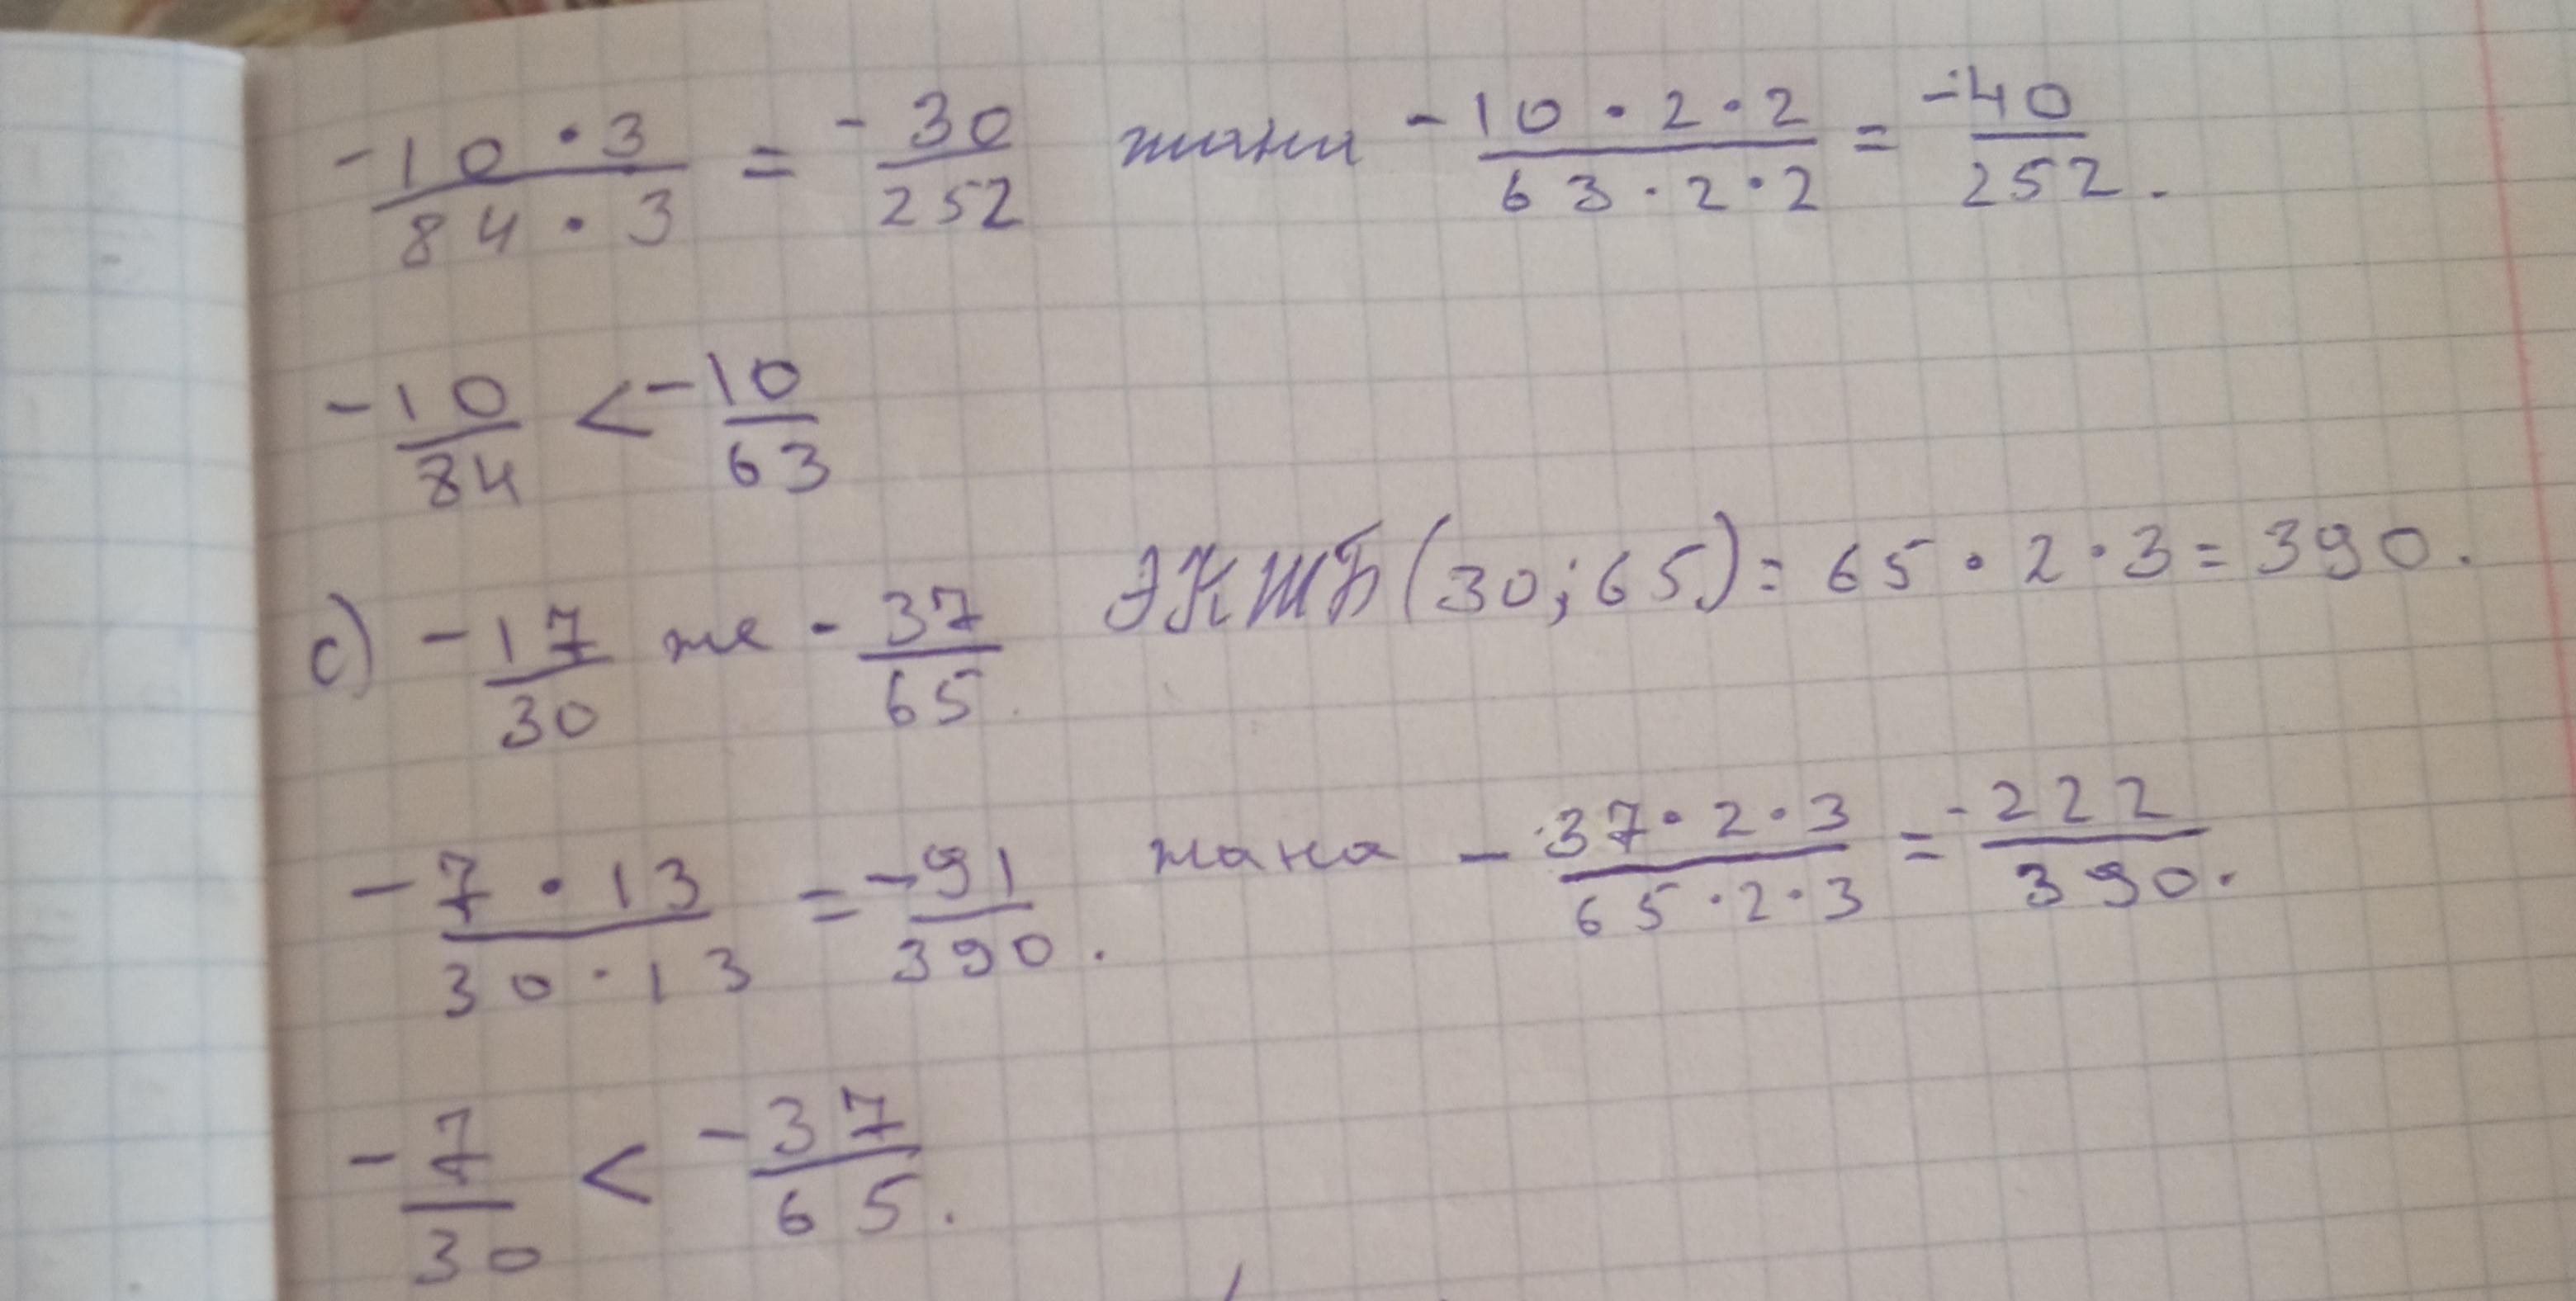 -10·3/84·3 = -30/252 жана -10·2·2/63·2·2 = -40/252.
-10/84 < -10/63
c) -17/30 же -37/65 ЭКЖБ(30;65)=65·2·3=390.
-7·13/30·13 = -91/390. жана -37·2·3/65·2·3 = -222/390.
-7/30 < -37/65.